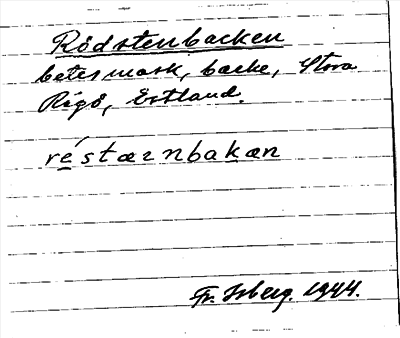 Rödstenbacken
betesmark, backe, Stora
Rågö, Estland.
réstærnbakæn
Fr. Isberg. 1944.